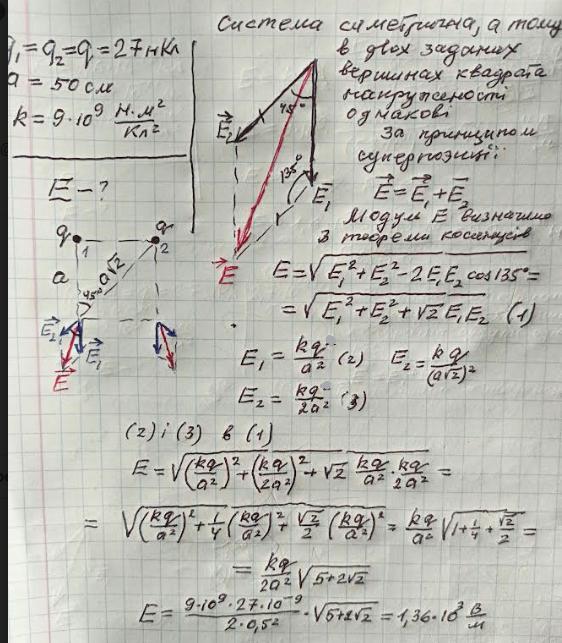 q₁=q₂=q=27нКл
a = 50 см
k = 9·10⁹ Н·м²/Кл²
E - ?
Система симетрична, а тому
в двох заданих
вершинах квадрата
напруженості
однакові
За принципом
суперпозиції
E⃗ = E⃗₁ + E⃗₂
Модуль E визначимо
з теореми косинусів
E = √(E₁² + E₂² - 2E₁E₂ cos135°) =
= √(E₁² + E₂² + √2 E₁E₂) (1)
E⃗₂
45°
135°
E⃗₁
E⃗
q
1
q
2
a
a√2
45°
E⃗₂
E⃗₁
E⃗
E₁ = kq/a² (2) E₂ = kq/(a√2)²
E₂ = kq/2a² (3)
(2) і (3) в (1)
E = √((kq/a²)² + (kq/2a²)² + √2 kq/a² · kq/2a²) =
= √((kq/a²)² + 1/4 (kq/a²)² + √2/2 (kq/a²)²) = kq/a² √(1 + 1/4 + √2/2) =
= kq/2a² √(5+2√2)
E = 9·10⁹·27·10⁻⁹/2·0,5² · √(5+2√2) = 1,36·10³ В/м